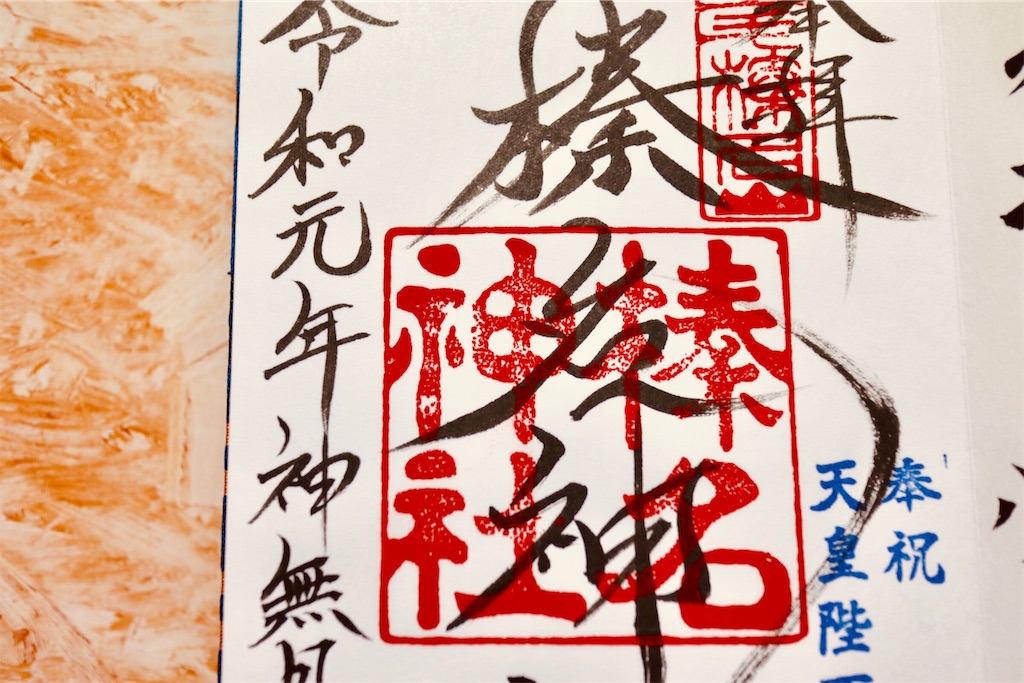 奉拝
奉祝
天皇陛
榛名神
榛名
神社
令和元年神無月